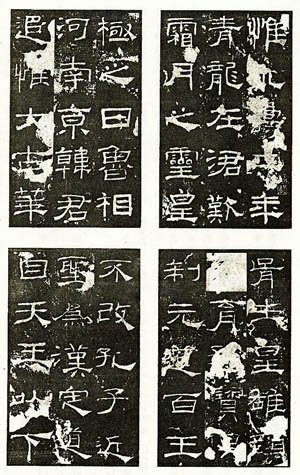 惟永壽二年
青龍在涒歎
霜月之靈皇
極之日魯相
河南京韓君
追惟大古華
胥生皇雄顏
育孔寶
制元道百王
不改孔子近
聖為漢定道
自天王以下